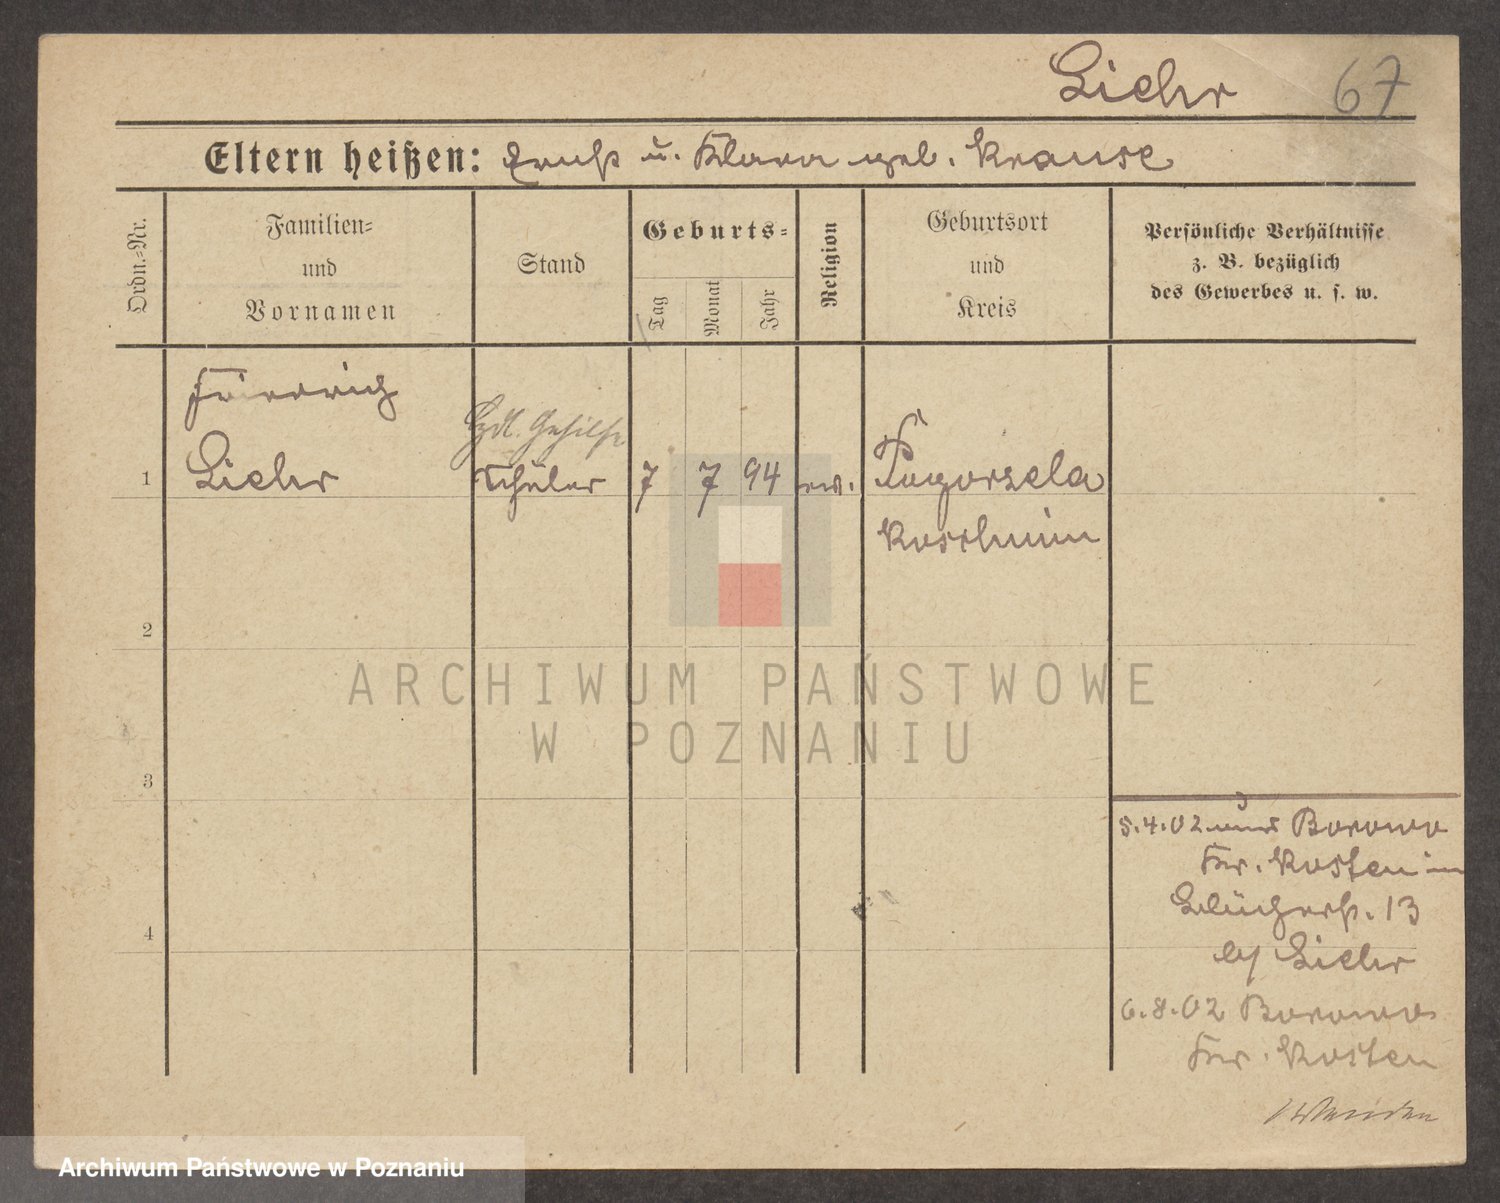 Liehr 67
Eltern heißen: Ernst u. Klara geb. Krause
Ordn.-Nr.
Familien-
und
Vornamen
Stand
Geburts-
Tag
Monat
Jahr
Religion
Geburtsort
und
Kreis
Persönliche Verhältnisse
z. B. bezüglich
des Gewerbes u. s. w.
Friedrich
Hdl. Gehilfe
1 Liehr Schüler 7 7 94 ev. Pogorzela
Koschmin
2
ARCHIWUM PAŃSTWOWE
W POZNANIU
3
5.4.02 Borowo
Kr. Kosten in
Blücherstr. 13
b/ Liehr
4
6.8.02 Borowo
Kr. Kosten
Archiwum Państwowe w Poznaniu